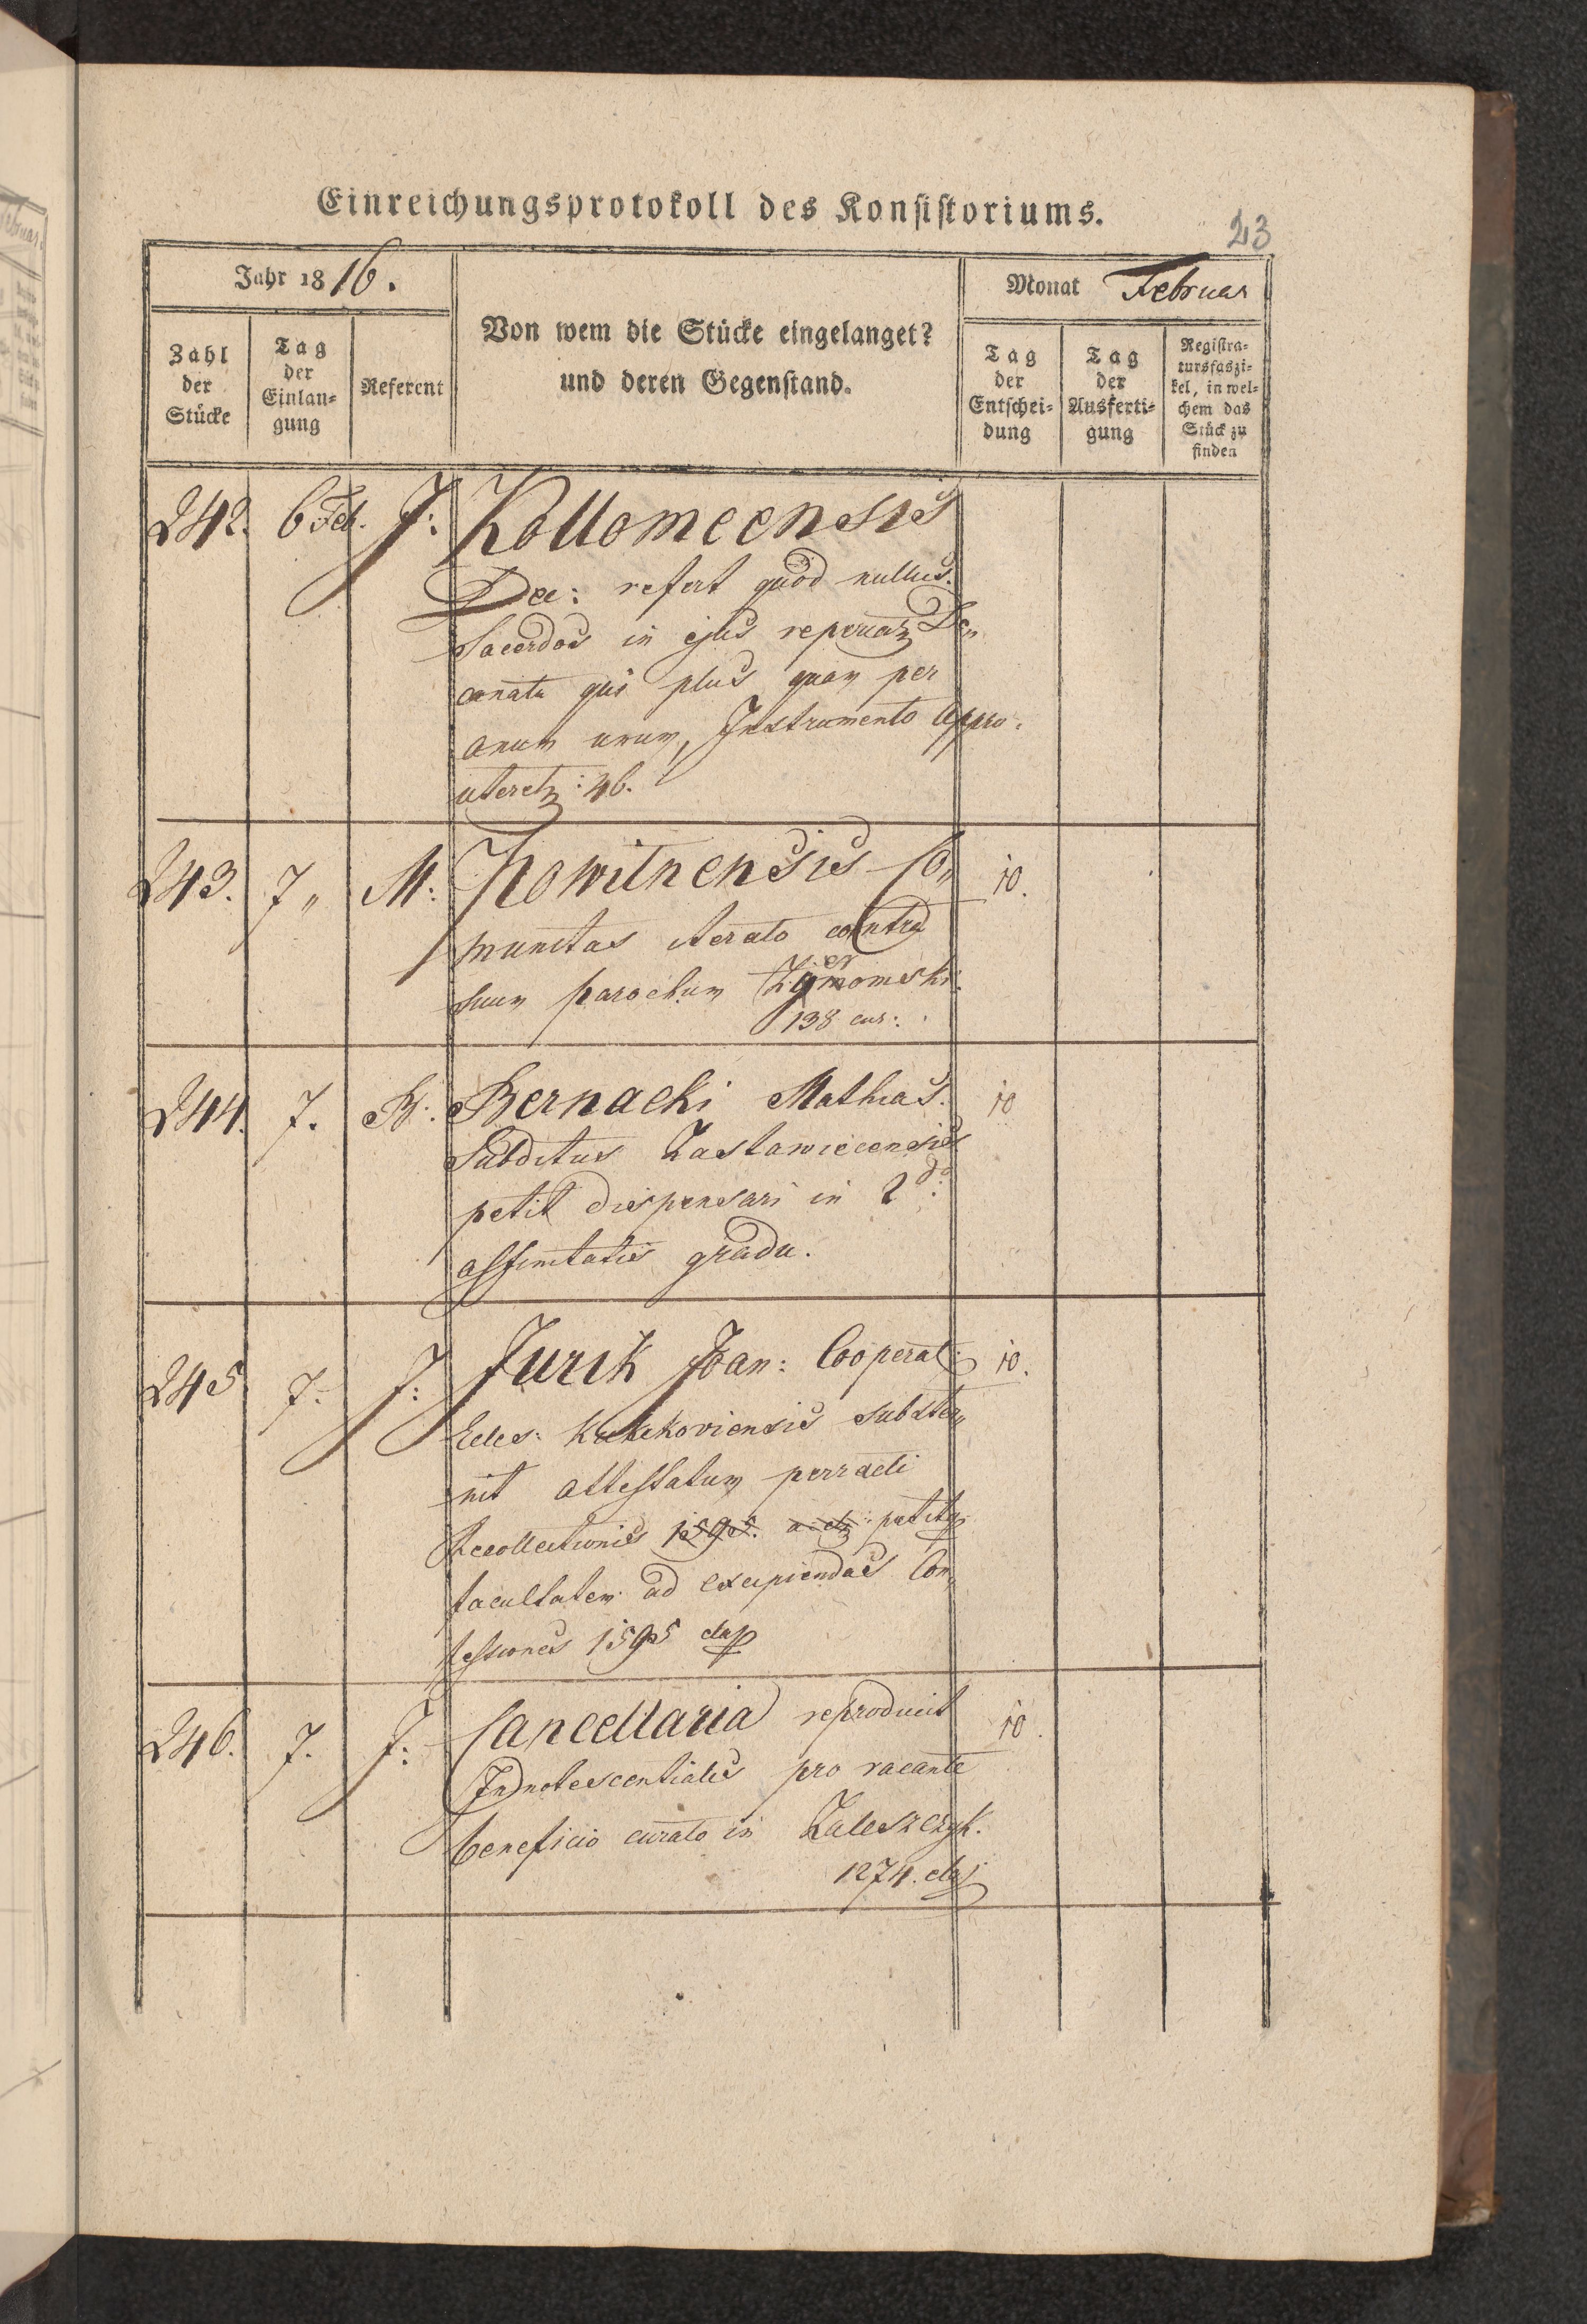 Einreichungsprotokoll des Konsistoriums.
23
Jahr 1816.
Von wem die Stücke eingelanget?
und deren Gegenstand.
Monat Februar
Zahl
der
Stücke
Tag
der
Einlan=
gung
Referent
Tag
der
Entschei=
dung
Tag
der
Ausferti=
gung
Registra=
tursfaszi=
kel, in wel=
chem das
Stück zu
finden
242. 6 Feb. J: Kollomeensis
Dec: refert quod nullus
Sacerdos in ejus reperiat De„
canatu qui plus quam per
anum unum, Instrumento Appro:
uteret: 46.
243. 7„ M: Nowitnensis Co„ 10.
munitas iterato contra
suum parochum
138 cur:
244. 7. B: Bernacki Mathias. 10
Subditus Zastawiecensis
petit dispensari in 2do:
affinitatis gradu.
245. 7. J: Jurik Joan: Cooperat: 10.
Eccles: Kukikoviensis subster„
nit attestatum peracti
Recollectionis 1595. petitq
facultatem ad excipiendas Con„
fessiones 1595 elap
246. 7. J: Cancellaria reproducit 10.
Indnotescentiales pro vacante
beneficio curato in Zaleszczyk.
1274. elap